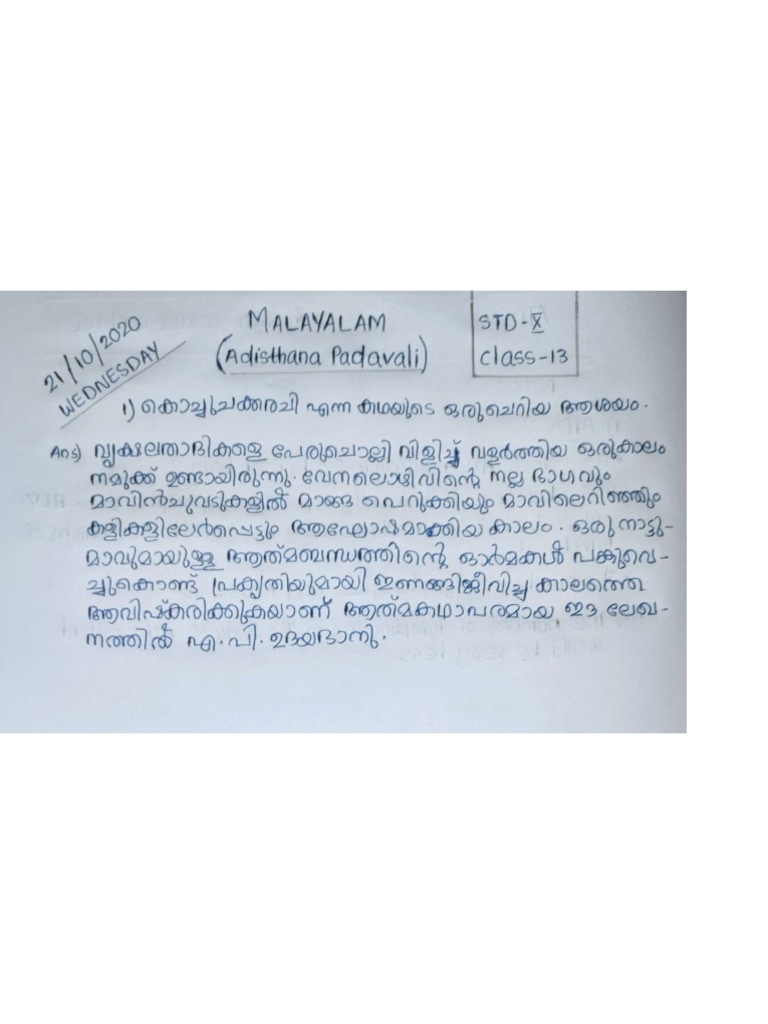 21/10/2020
WEDNESDAY
MALAYALAM
(Adisthana Padavali)
STD-X
Class-13
1) കൊച്ചുചക്കരച്ചി എന്ന കഥയുടെ ഒരുചെറിയ ആശയം.
Ans) വൃക്ഷലതാദികളെ പേരുചൊല്ലി വിളിച്ച് വളർത്തിയ ഒരുകാലം
നമുക്ക് ഉണ്ടായിരുന്നു. വേനലൊഴിവിന്റെ നല്ല ഭാഗവും
മാവിൻചുവടുകളിൽ മാങ്ങ പെറുക്കിയും മാവിലെറിഞ്ഞും
കളികളിലേർപ്പെട്ടും ആഘോഷമാക്കിയ കാലം. ഒരു നാട്ടു-
മാവുമായുള്ള ആത്മബന്ധത്തിന്റെ ഓർമകൾ പങ്കുവെ-
ച്ചുകൊണ്ട് പ്രകൃതിയുമായി ഇണങ്ങിജീവിച്ച കാലത്തെ
ആവിഷ്കരിക്കുകയാണ് ആത്മകഥാപരമായ ഈ ലേഖ-
നത്തിൽ എ.പി. ഉദയഭാനു.